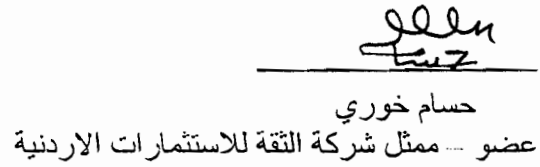 حسام خوري
عضو – ممثل شركة الثقة للاستثمارات الاردنية